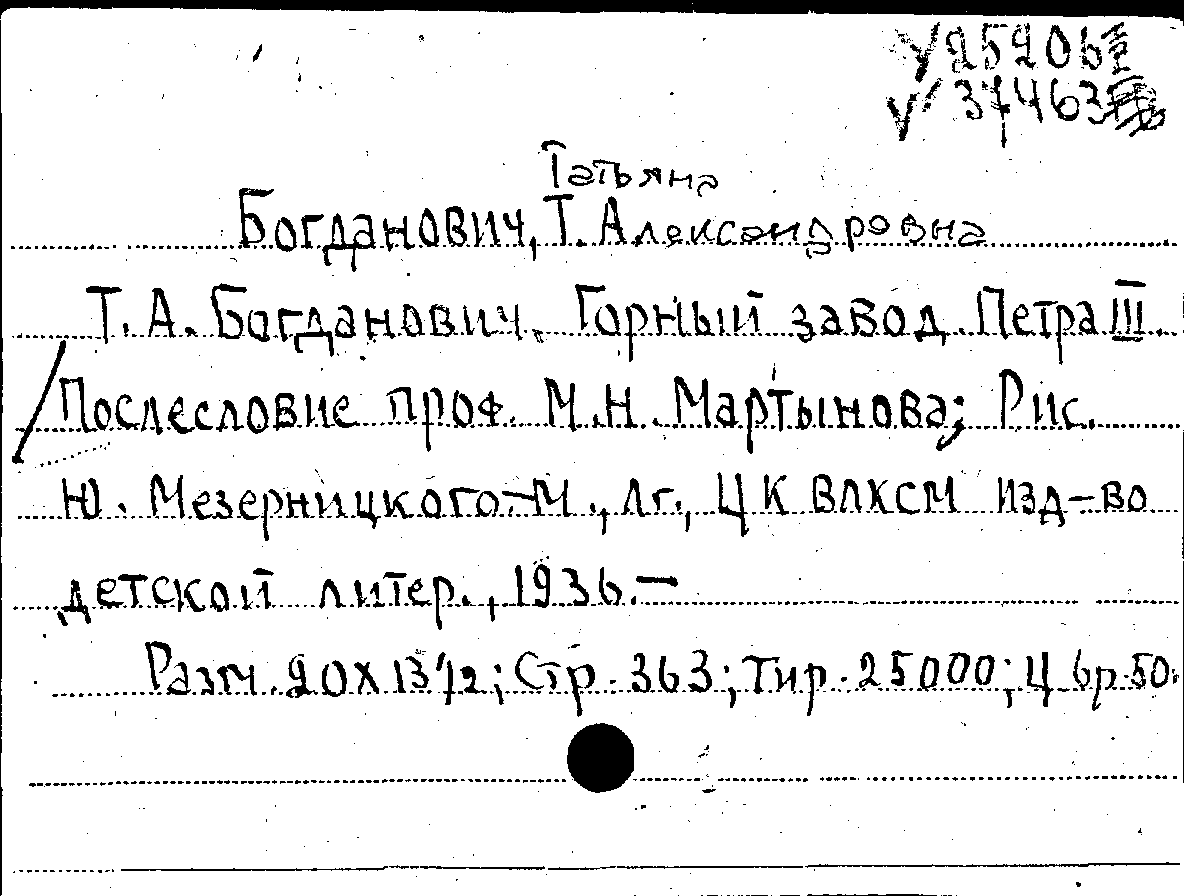 V 25206 III
V 37463
Татьяна
Богданович, Т. Александровна
Т. А. Богданович. Горный завод Петра III.
Послесловие проф. М.Н. Мартынова; Рис.
Ю. Мезерницкого.–М., Лг., ЦК ВЛКСМ изд-во
детской литер., 1936.–
Разм. 20х13 1/2; Стр. 363; Тир. 25000; Ц. 6р.50.